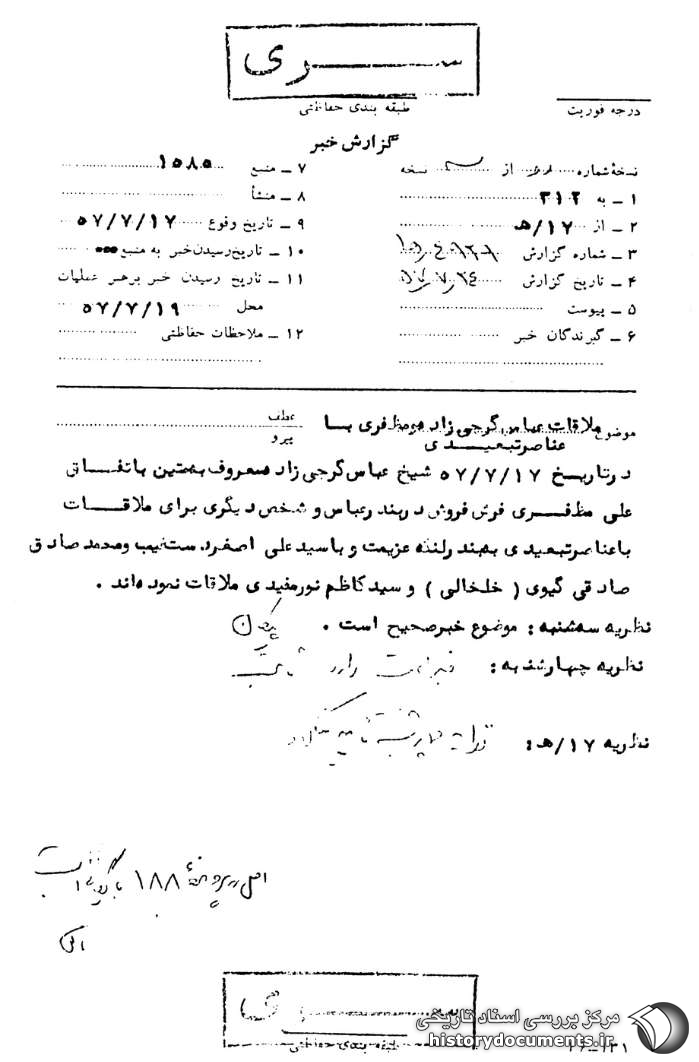 ســـری
طبقه بندی حفاظتی
درجه فوریت
گزارش خبر
نسخهٔ شماره از نسخه
۱ ـ به ۳۱۲
۲ ـ از ۱۷/هـ
۳ ـ شماره گزارش
۴ ـ تاریخ گزارش
۵ ـ پیوست
۶ ـ گیرندگان خبر
۷ ـ منبع ۱۵۸۵
۸ ـ منشأ
۹ ـ تاریخ وقوع ۵۷/۷/۱۷
۱۰ ـ تاریخ رسیدن خبر به منبع
۱۱ ـ تاریخ رسیدن خبر برهبر عملیات
محل ۵۷/۷/۱۹
۱۲ ـ ملاحظات حفاظتی
موضوع ملاقات عباس گرجی زاد و مظفری با
عناصر تبعیدی
عطف
پیرو
در تاریخ ۵۷/۷/۱۷ شیخ عباس گرجی زاد معروف بمتین باتفاق
علی مظفری فرش فروش در بندرعباس و شخص دیگری برای ملاقات
با عناصر تبعیدی به بندر لنگه عزیمت و با سید علی اصغر دستغیب و محمد صادق
صادقی گیوی ( خلخالی ) و سید کاظم نورمفیدی ملاقات نموده اند .
نظریه سه شنبه : موضوع خبر صحیح است .
نظریه چهارشنبه :
نظریه ۱۷/هـ :
اصل در پرونده ۱۸۸
ســـری
طبقه بندی حفاظتی
مرکز بررسی اسناد تاریخی
historydocuments.ir